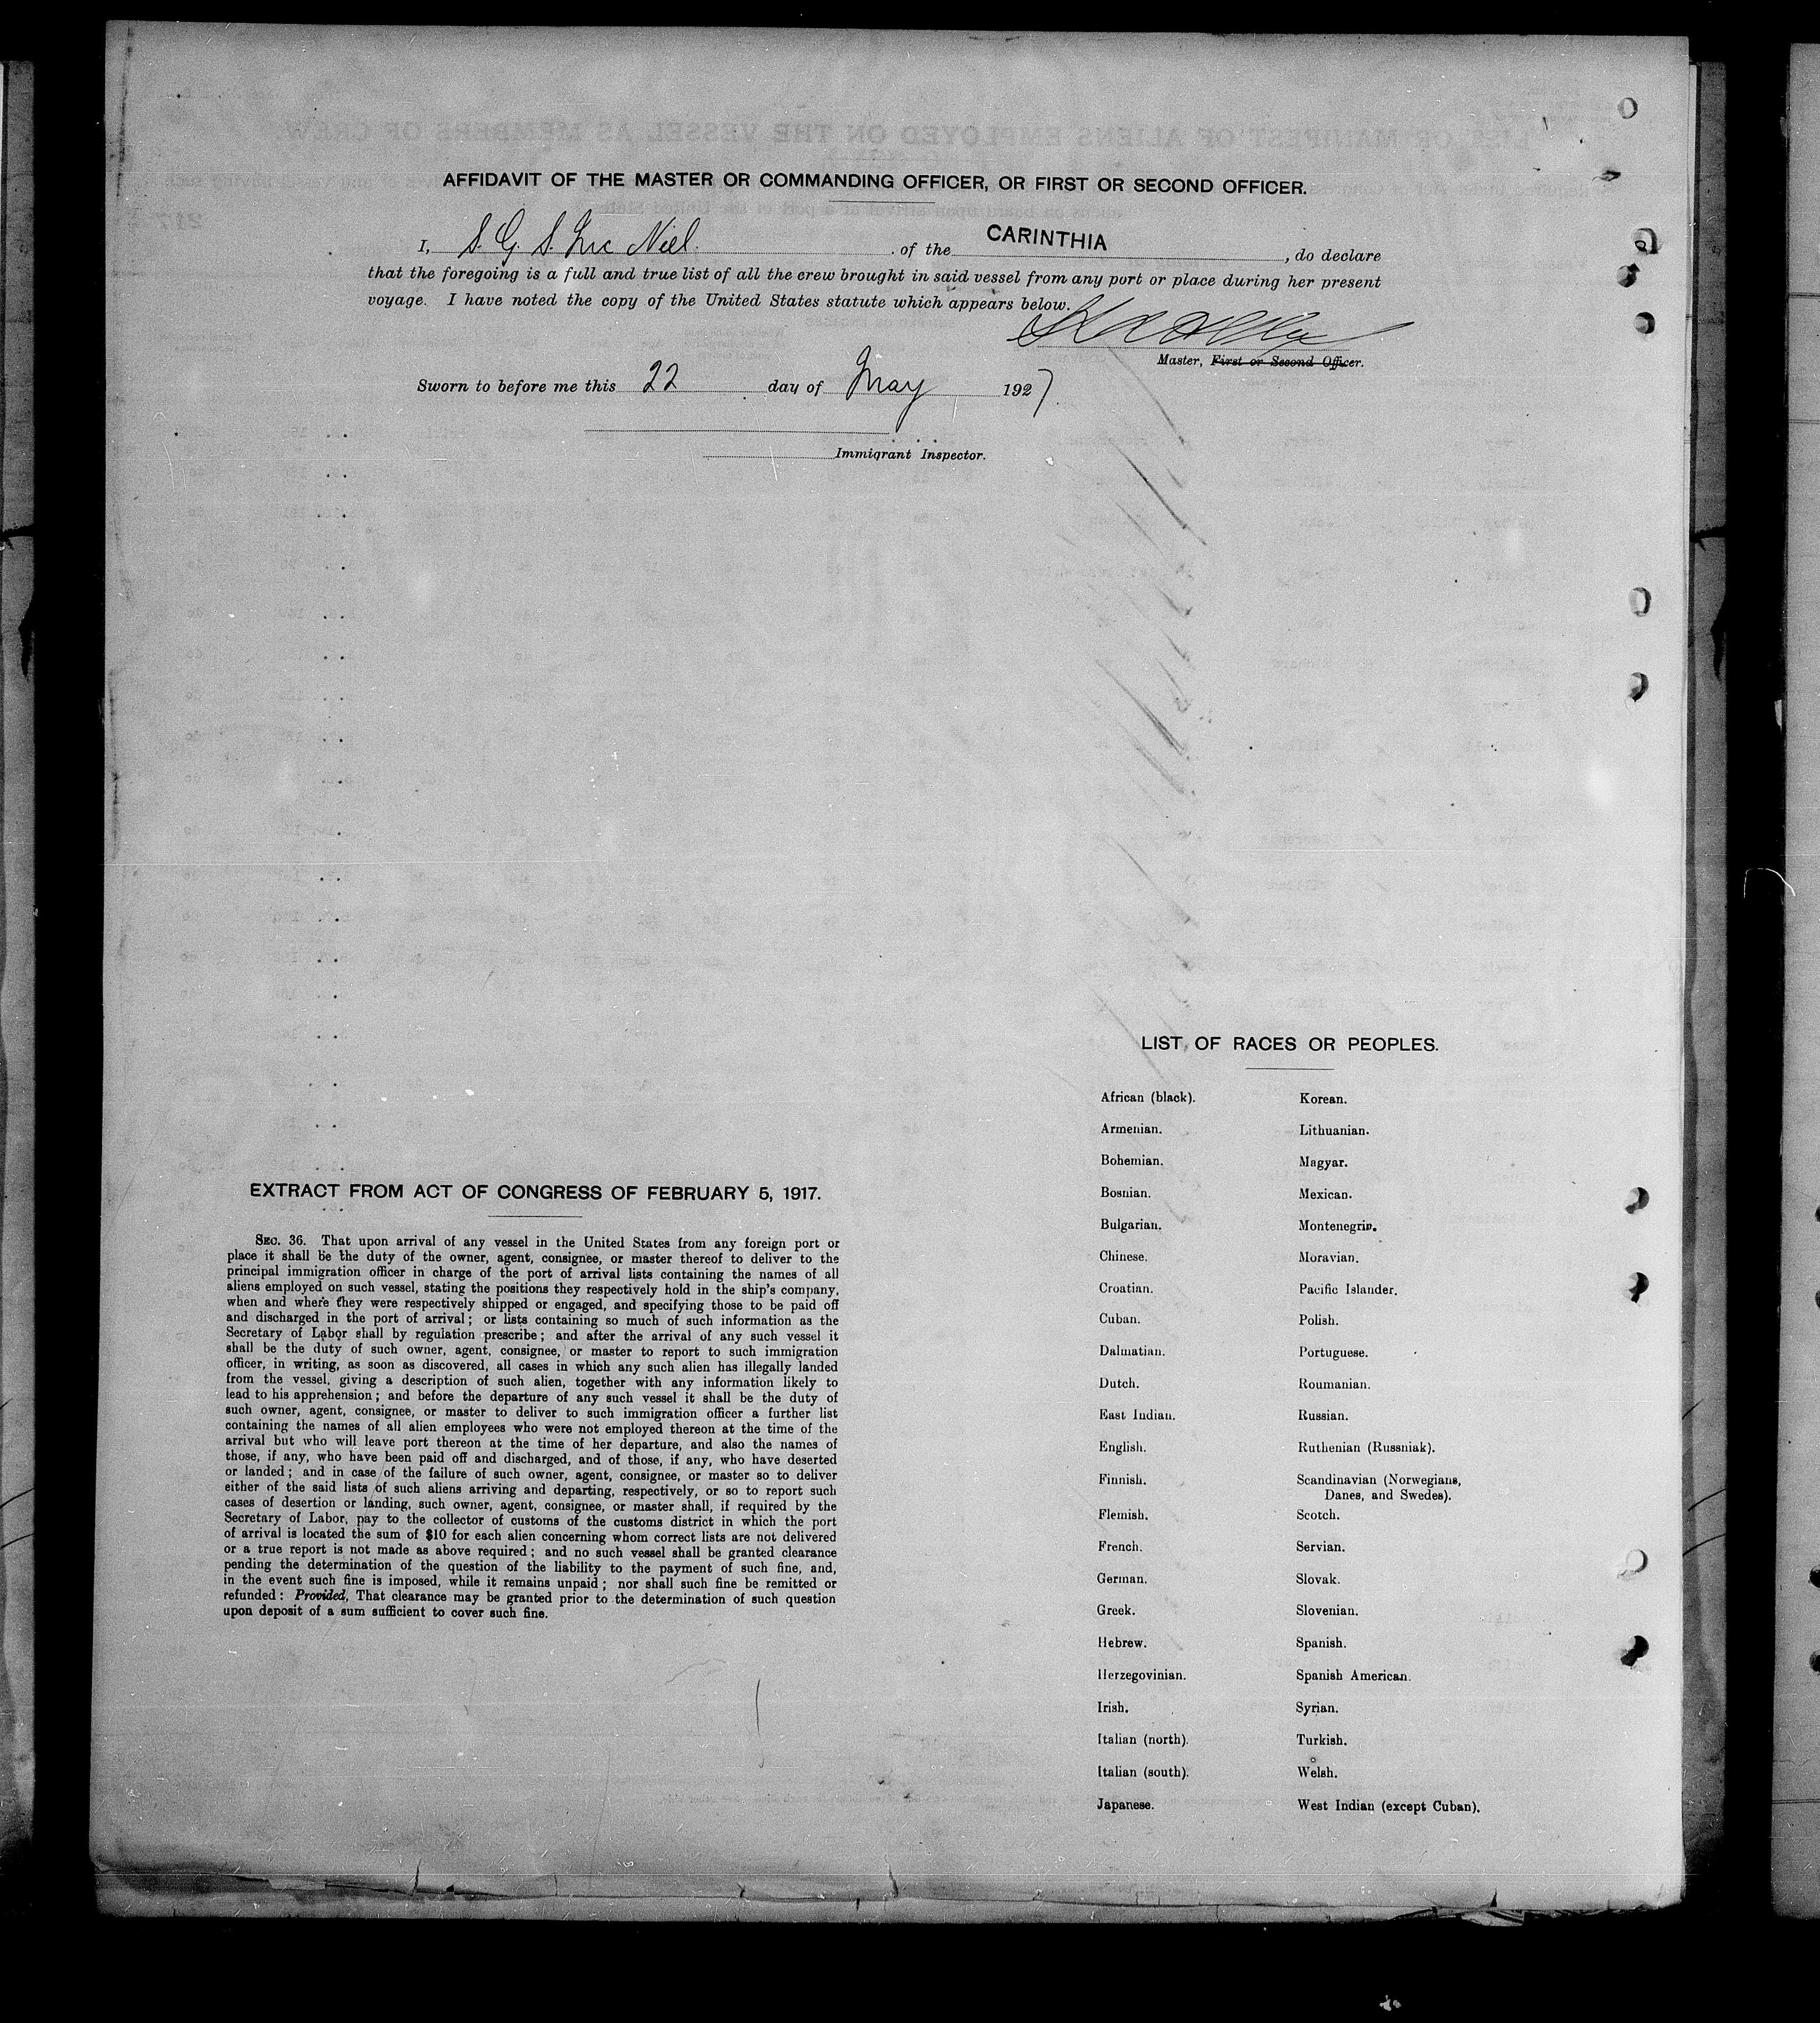 AFFIDAVIT OF THE MASTER OR COMMANDING OFFICER, OR FIRST OR SECOND OFFICER.
I, S. G. S. Mc Niel. of the CARINTHIA, do declare
that the foregoing is a full and true list of all the crew brought in said vessel from any port or place during her present
voyage. I have noted the copy of the United States statute which appears below.
Master, First or Second Officer.
Sworn to before me this 22 day of May 1927.
Immigrant Inspector.
EXTRACT FROM ACT OF CONGRESS OF FEBRUARY 5, 1917.
SEC. 36. That upon arrival of any vessel in the United States from any foreign port or
place it shall be the duty of the owner, agent, consignee, or master thereof to deliver to the
principal immigration officer in charge of the port of arrival lists containing the names of all
aliens employed on such vessel, stating the positions they respectively hold in the ship's company,
when and where they were respectively shipped or engaged, and specifying those to be paid off
and discharged in the port of arrival; or lists containing so much of such information as the
Secretary of Labor shall by regulation prescribe; and after the arrival of any such vessel it
shall be the duty of such owner, agent, consignee, or master to report to such immigration
officer, in writing, as soon as discovered, all cases in which any such alien has illegally landed
from the vessel, giving a description of such alien, together with any information likely to
lead to his apprehension; and before the departure of any such vessel it shall be the duty of
such owner, agent, consignee, or master to deliver to such immigration officer a further list
containing the names of all alien employees who were not employed thereon at the time of the
arrival but who will leave port thereon at the time of her departure, and also the names of
those, if any, who have been paid off and discharged, and of those, if any, who have deserted
or landed; and in case of the failure of such owner, agent, consignee, or master so to deliver
either of the said lists of such aliens arriving and departing, respectively, or so to report such
cases of desertion or landing, such owner, agent, consignee, or master shall, if required by the
Secretary of Labor, pay to the collector of customs of the customs district in which the port
of arrival is located the sum of $10 for each alien concerning whom correct lists are not delivered
or a true report is not made as above required; and no such vessel shall be granted clearance
pending the determination of the question of the liability to the payment of such fine, and,
in the event such fine is imposed, while it remains unpaid; nor shall such fine be remitted or
refunded: Provided, That clearance may be granted prior to the determination of such question
upon deposit of a sum sufficient to cover such fine.
LIST OF RACES OR PEOPLES.
African (black).
Armenian.
Bohemian.
Bosnian.
Bulgarian.
Chinese.
Croatian.
Cuban.
Dalmatian.
Dutch.
East Indian.
English.
Finnish.
Flemish.
French.
German.
Greek.
Hebrew.
Herzegovinian.
Irish.
Italian (north).
Italian (south).
Japanese.
Korean.
Lithuanian.
Magyar.
Mexican.
Montenegrin.
Moravian.
Pacific Islander.
Polish.
Portuguese.
Roumanian.
Russian.
Ruthenian (Russniak).
Scandinavian (Norwegians,
Danes, and Swedes).
Scotch.
Servian.
Slovak.
Slovenian.
Spanish.
Spanish American.
Syrian.
Turkish.
Welsh.
West Indian (except Cuban).